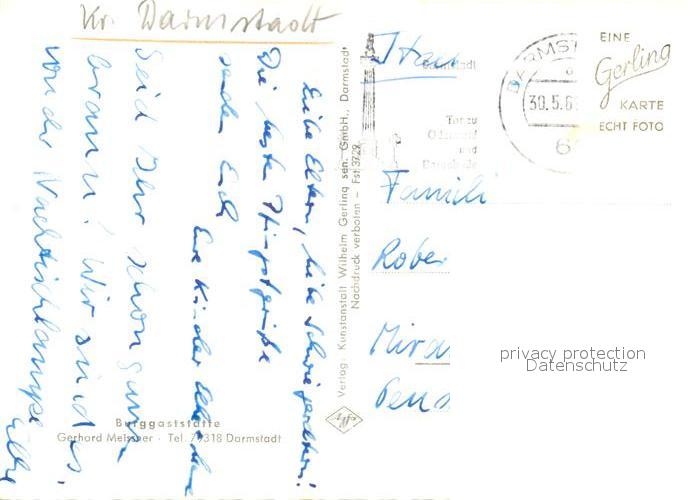 Kr. Darmstadt
Liebe Eltern, liebe Schwiegereltern!
Die besten Pfingstgrüße
senden Euch
Eure Kinder
Seid Ihr schon ganz
braun? Wir sind es,
von der Nachttischlampe
Burggaststätte
Gerhard Meissner · Tel. 79318 Darmstadt
Verlag: Kunstanstalt Wilhelm Gerling sen. GmbH., Darmstadt
Nachdruck verboten – Fst 3729
Darmstadt
Tor zu
Odenwald
und
Bergstraße
DARMST
30.5.6
6
EINE
Gerling
KARTE
ECHT FOTO
Famili
Rober
privacy protection
Datenschutz